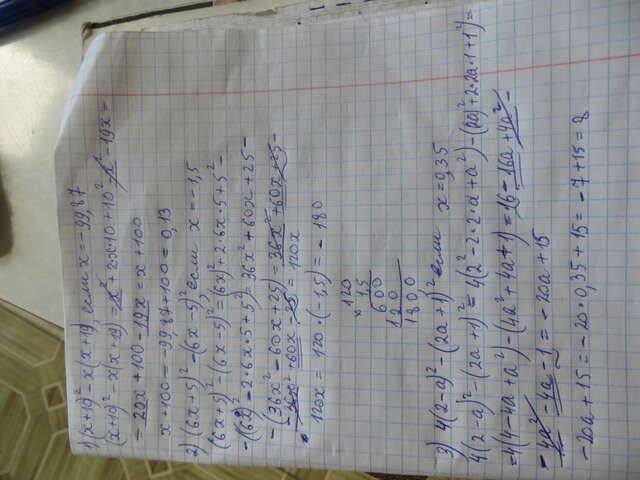 1) (x+10)² - x(x+19) если x = -99,87
(x+10)² - x(x+19) = x² + 2·x·10 + 10² - x² - 19x =
= 20x + 100 - 19x = x + 100
x + 100 = -99,87 + 100 = 0,13
2) (6x+5)² - (6x-5)² если x = -1,5
(6x+5)² - (6x-5)² = (6x)² + 2·6x·5 + 5² -
- ((6x)² - 2·6x·5 + 5²) = 36x² + 60x + 25 -
- (36x² - 60x + 25) = 36x² + 60x + 25 -
- 36x² + 60x - 25 = 120x
120x = 120·(-1,5) = -180
120
× 15
600
120
1800
3) 4(2-a)² - (2a+1)² если x = 0,35
4(2-a)² - (2a+1)² = 4(2² - 2·2·a + a²) - ((2a)² + 2·2a·1 + 1²) =
= 4(4 - 4a + a²) - (4a² + 4a + 1) = 16 - 16a + 4a² -
- 4a² - 4a - 1 = -20a + 15
-20a + 15 = -20·0,35 + 15 = -7 + 15 = 8